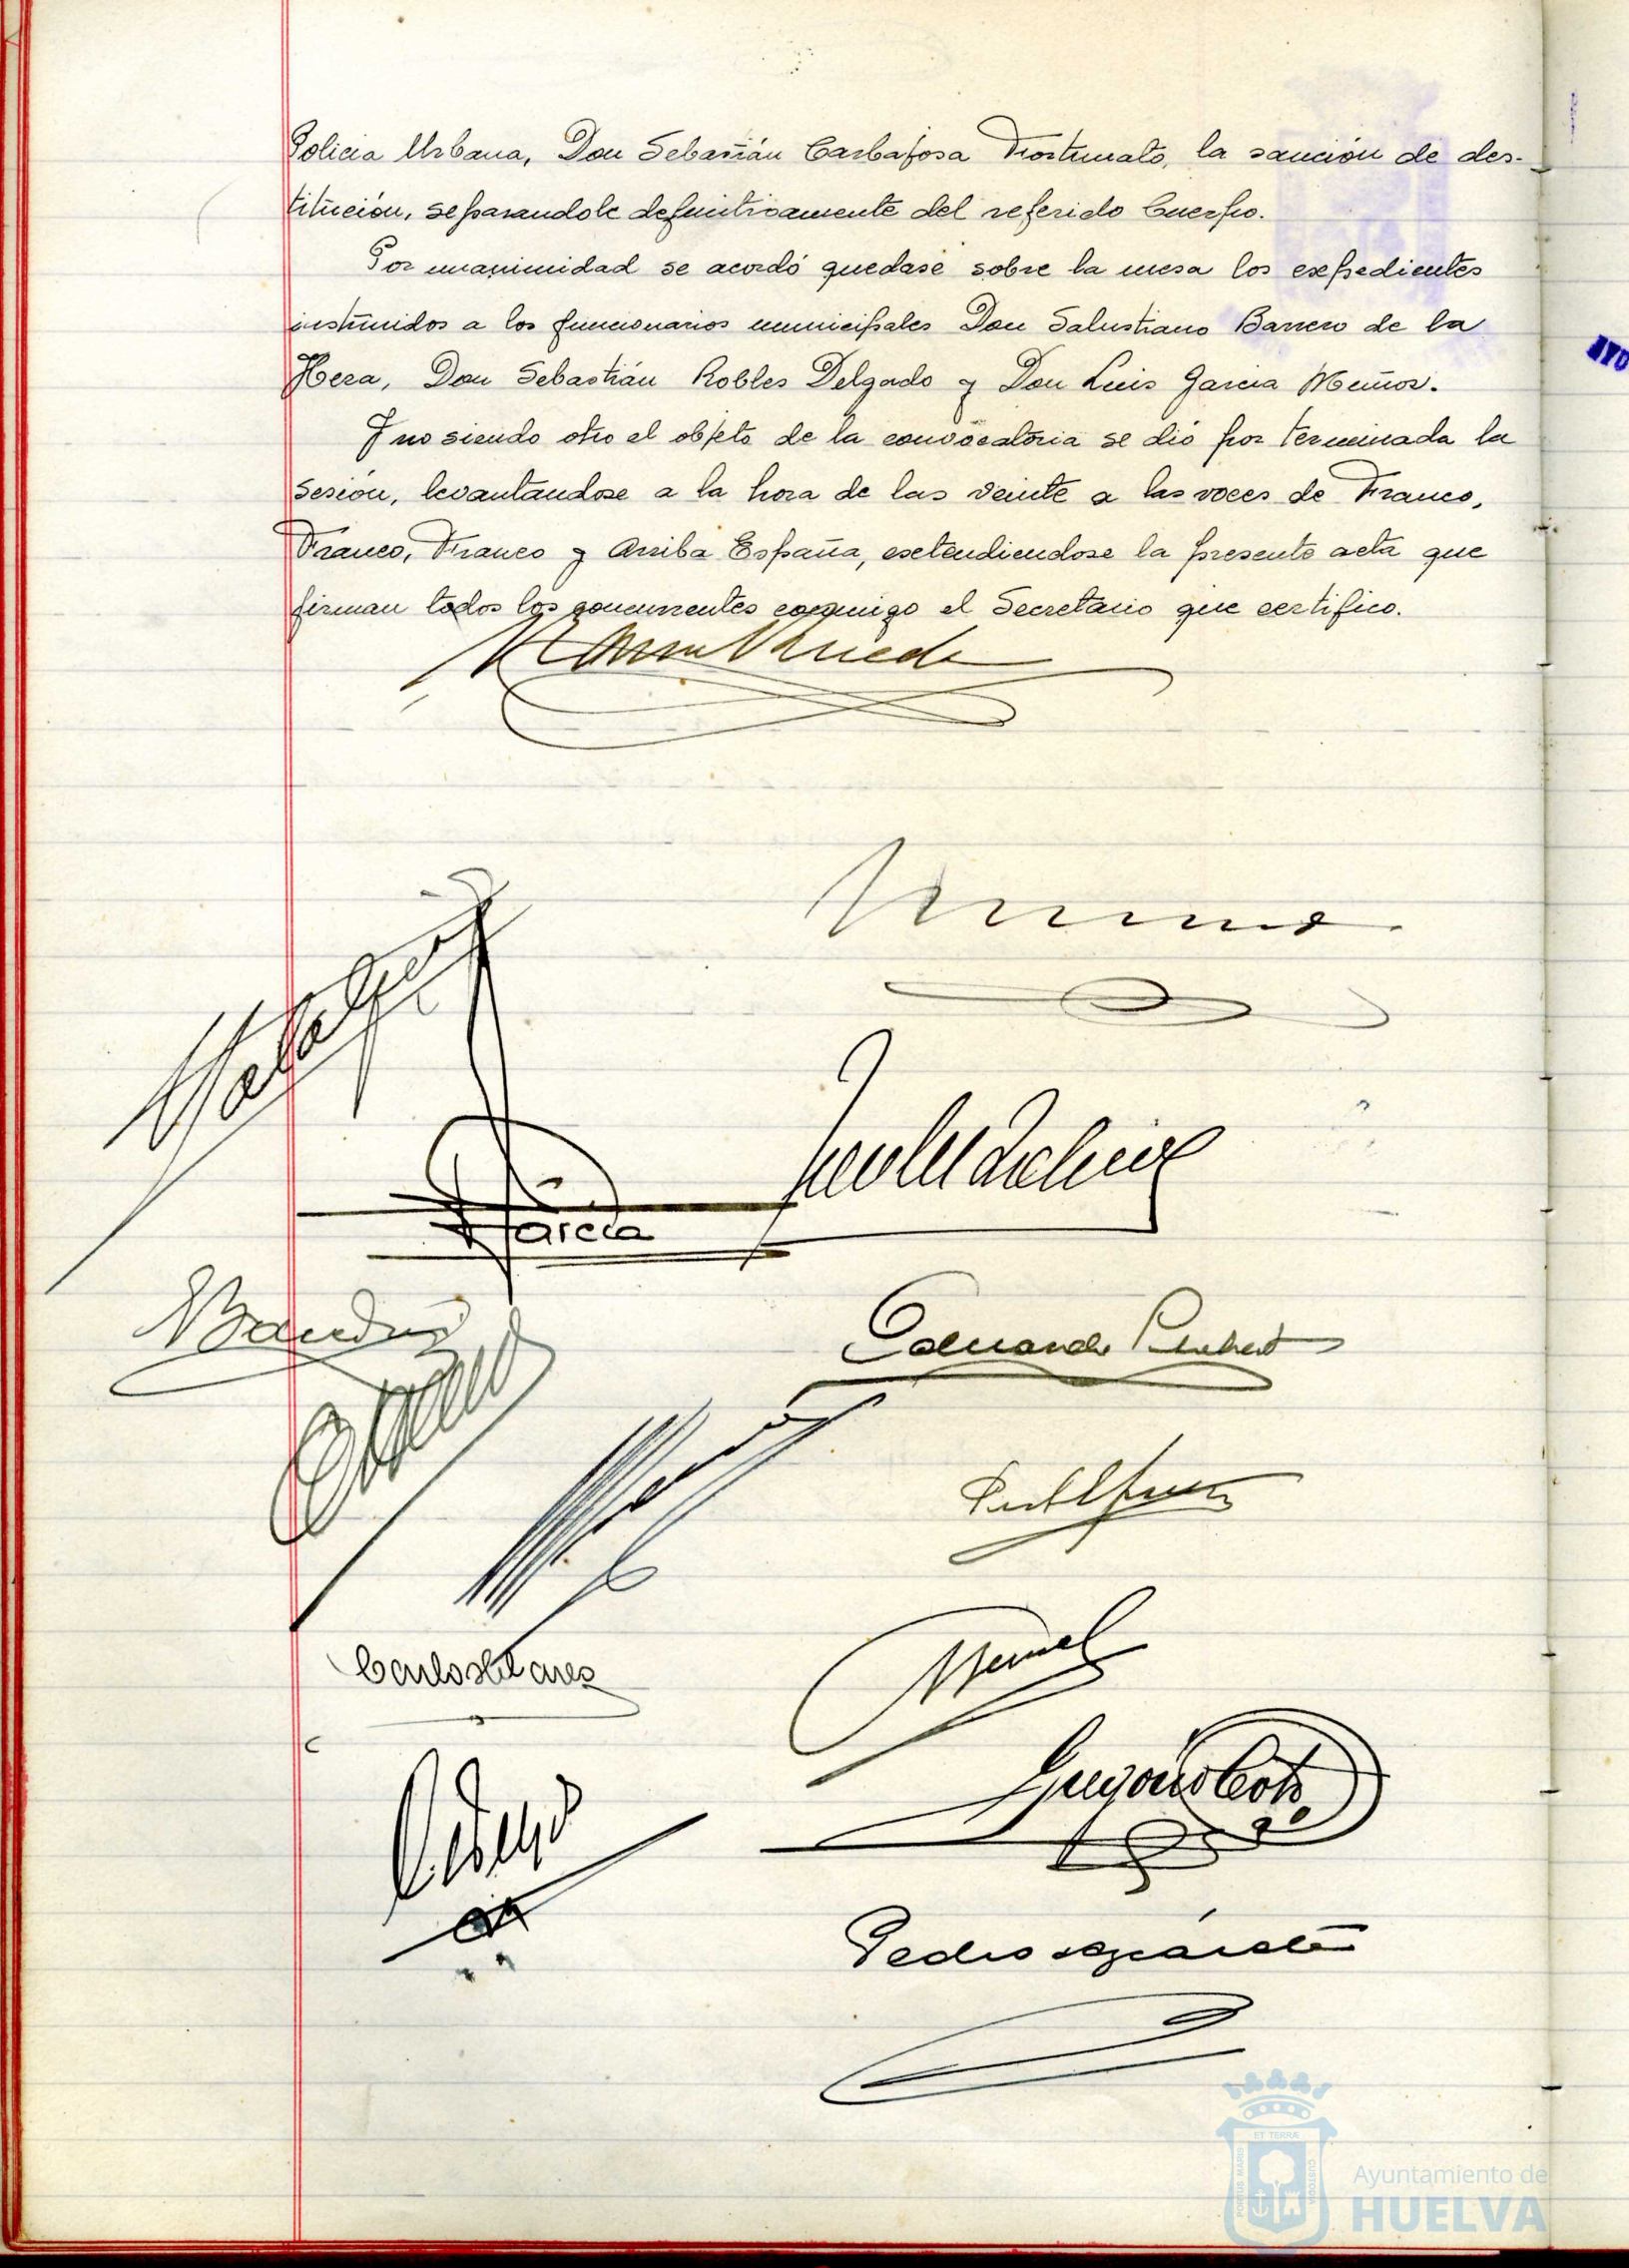 Policia Urbana, Don Sebastián Carbajosa Fortunato, la sanción de des-
titución, separandole definitivamente del referido Cuerpo.
Por unanimidad se acordó quedase sobre la mesa los expedientes
instruidos a los funcionarios municipales Don Salustiano Barrero de la
Hera, Don Sebastián Robles Delgado y Don Luis Garcia Muñoz.
Y no siendo otro el objeto de la convocatoria se dió por terminada la
sesión, levantandose a la hora de las veinte a las voces de Franco,
Franco, Franco y Arriba España, extendiendose la presente acta que
firman todos los concurrentes conmigo el Secretario que certifico.
Garcia
Eduardo
Manuel
Gregorio Coto
Pedro
ET TERRÆ
PORTUS MARIS
CUSTODIA
Ayuntamiento de
HUELVA